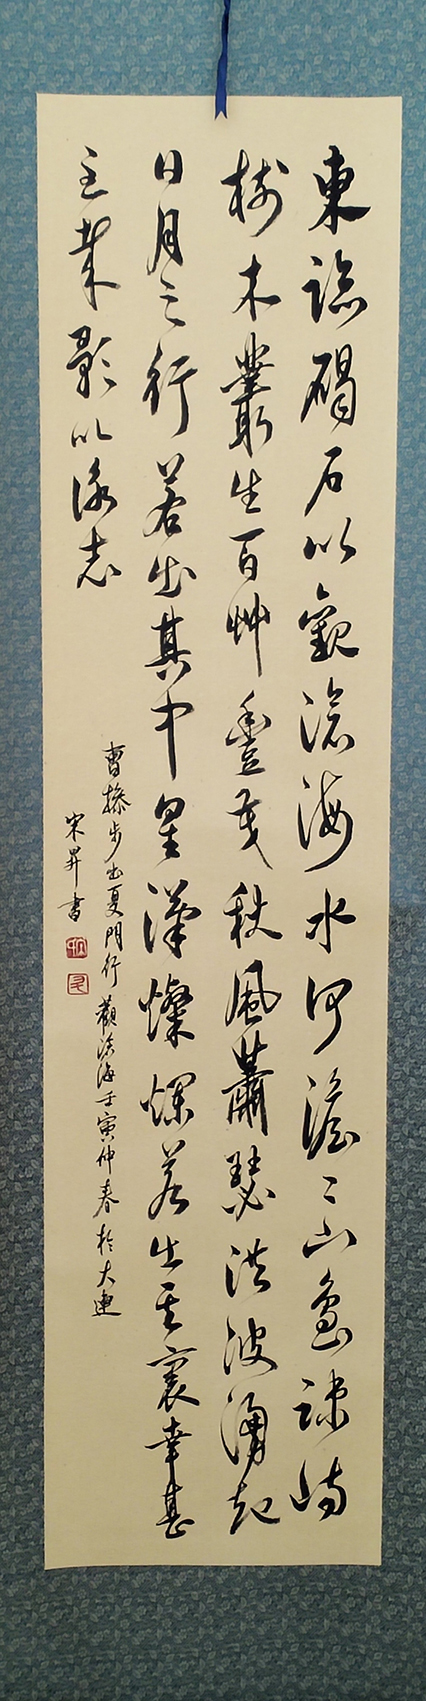 東臨碣石以觀滄海水何澹〻山島竦峙
樹木叢生百艸豐茂秋風蕭瑟洪波涌起
日月之行若出其中星漢燦爛若出其裏幸甚
至哉歌以詠志
曹操步出夏門行觀滄海壬寅仲春於大連
宋昇書